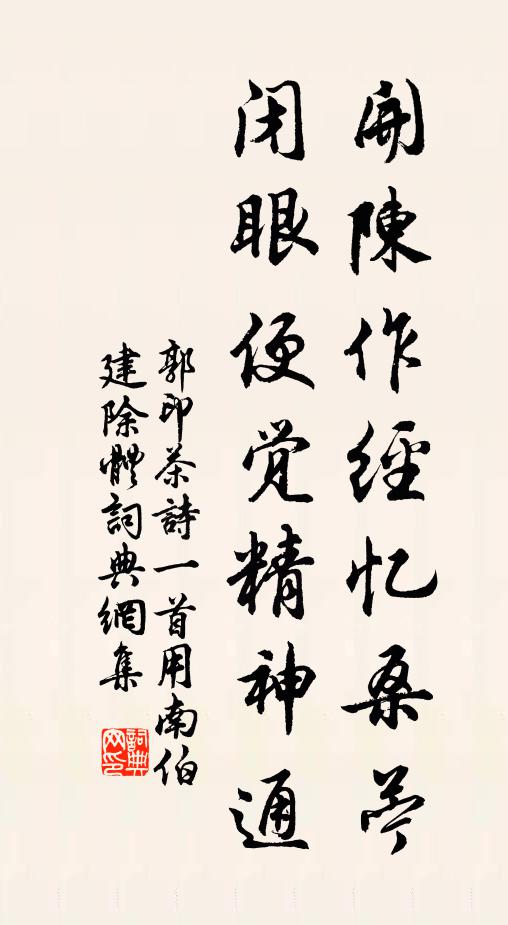 開陳作經忆桑苎
闭眼便觉精神通
郭印茶詩一首用南伯
建除體詞典網集
詞典网印